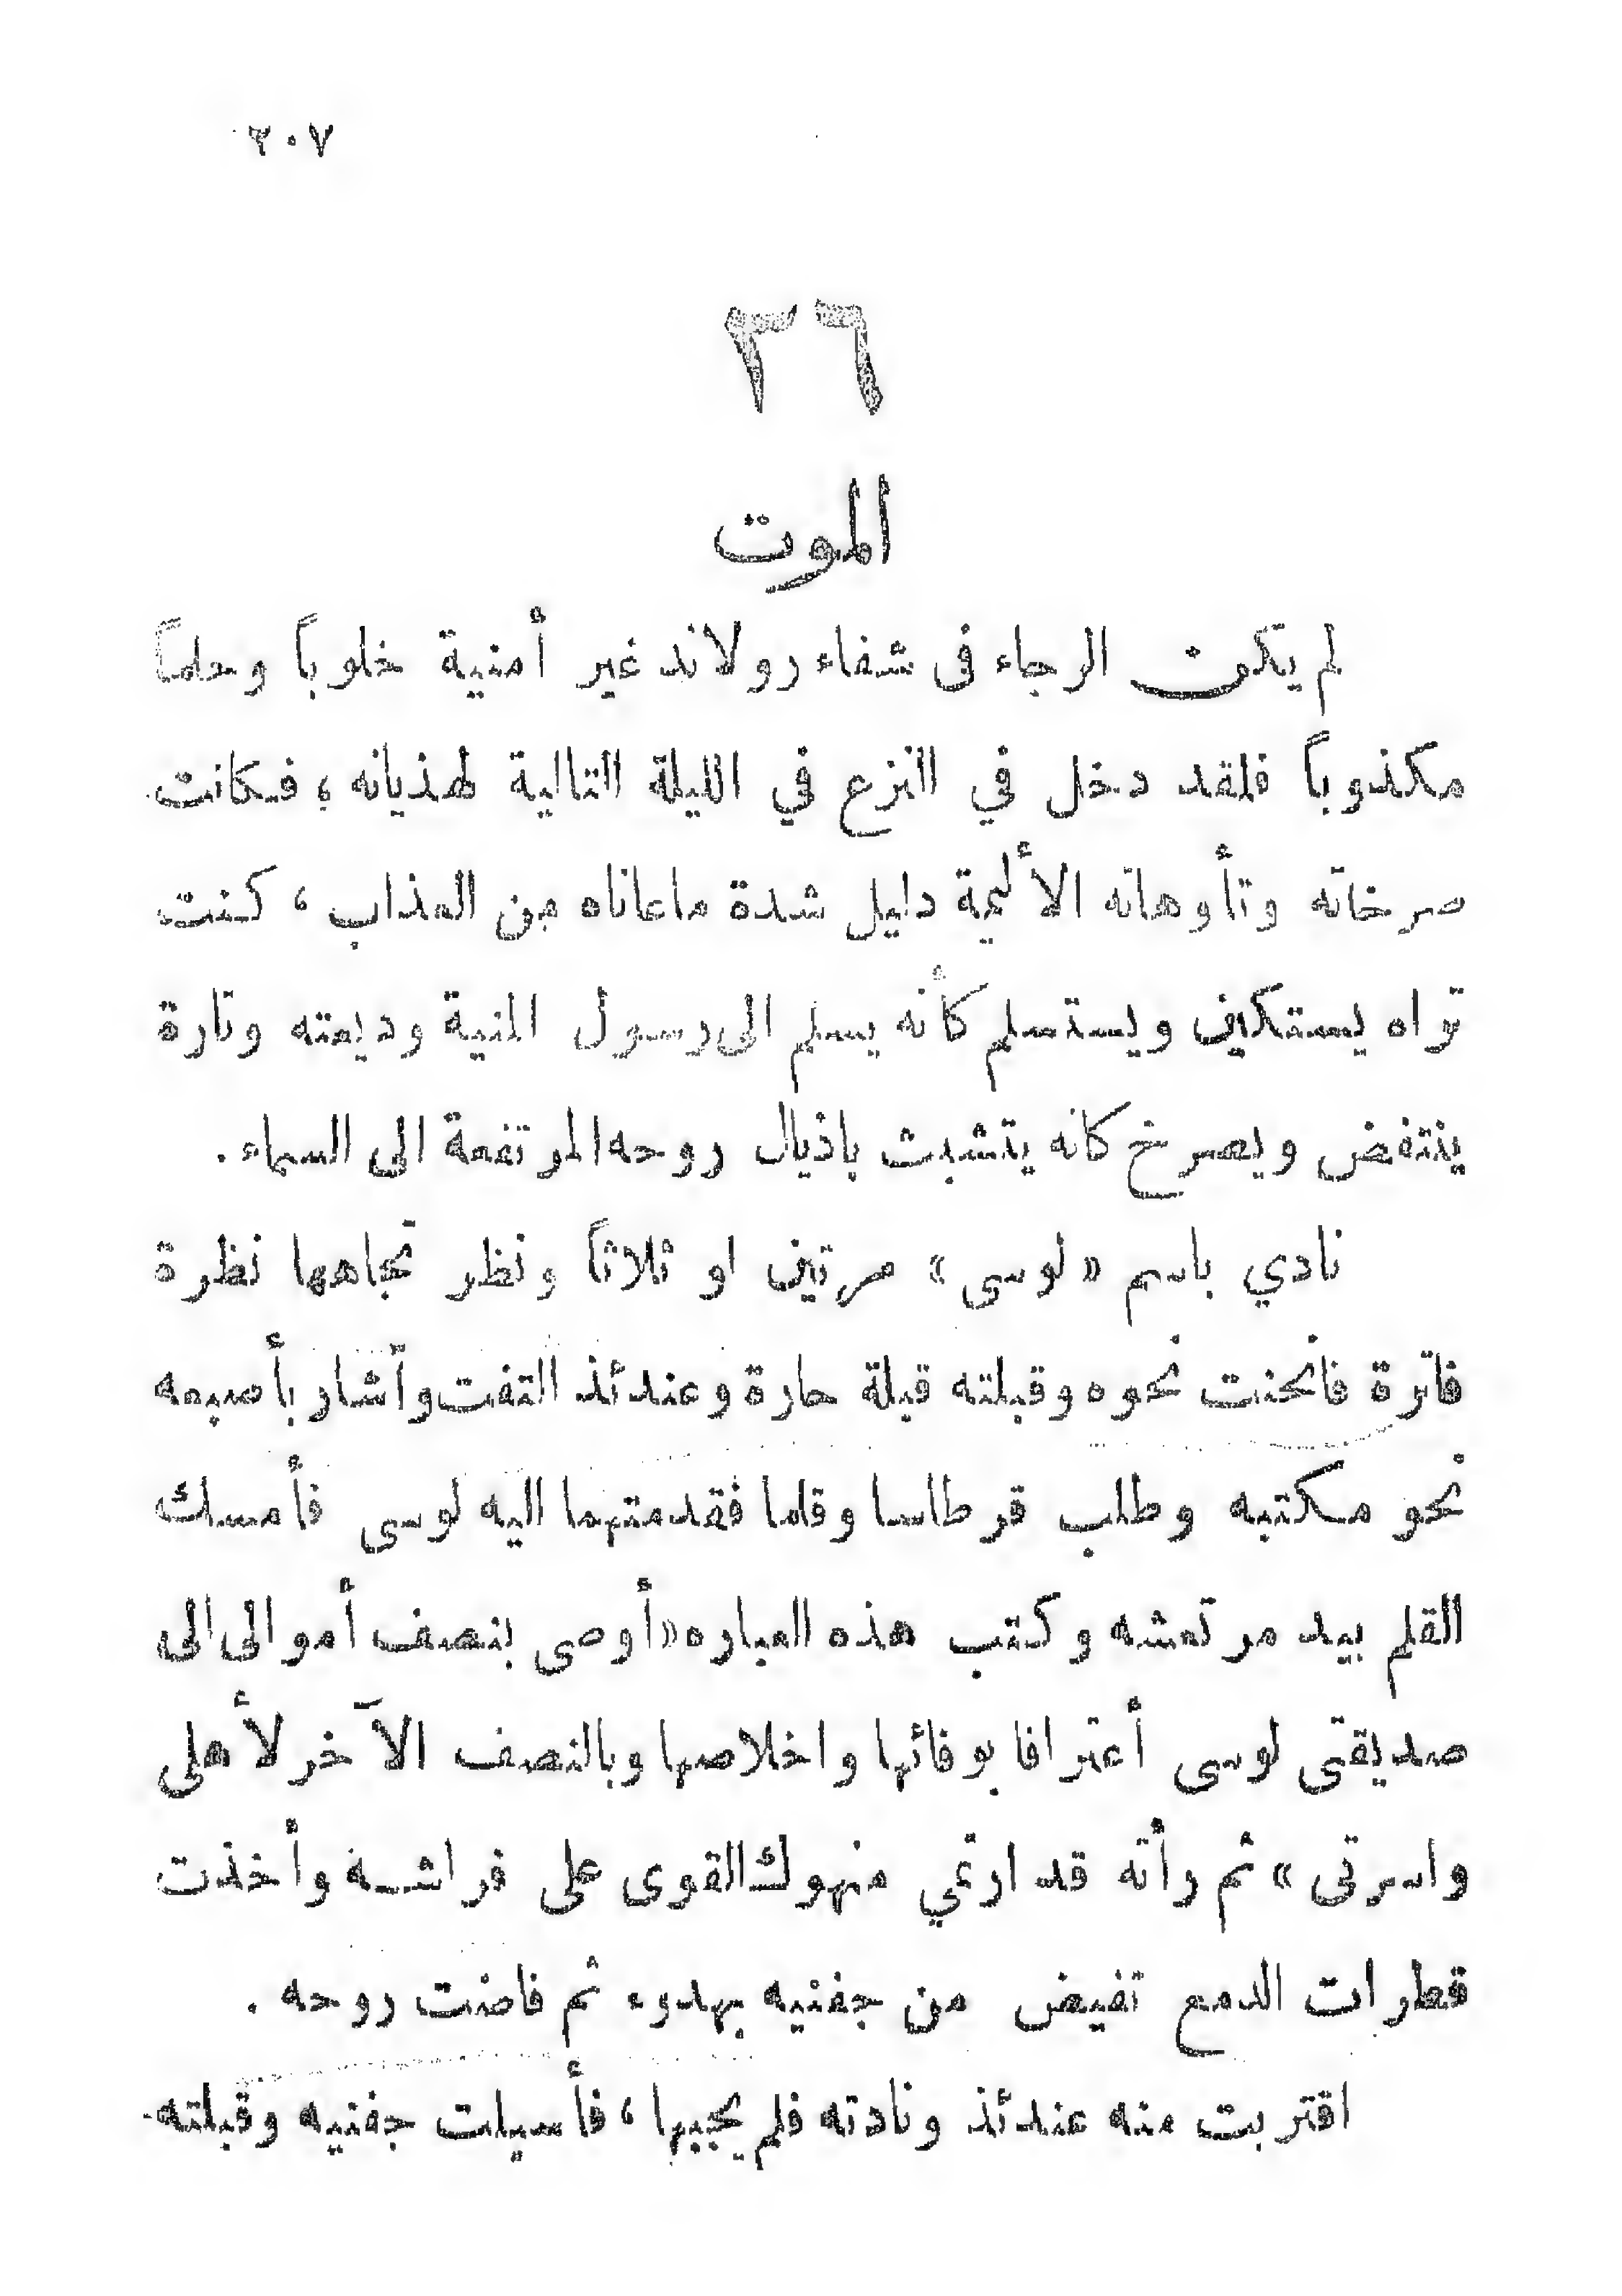 ٢٠٧
٣٦
الموت
لم يكن الرجاء فى شفاء رولاند غير أمنية خلوباً وحلماً
مكذوباً فلقد دخل في النزع في الليلة التالية لهذيانه ، فكانت
صرخاته وتأوهاته الأليمة دليل شدة ماعاناه من العذاب ، كنت
تراه يستكين ويستسلم كأنه يسلم الى رسول المنية وديعته وتارة
ينتفض ويصرخ كانه يتشبث باذيال روحه المرتفعة الى السماء .
نادي باسم « لوسى » مرتين او ثلاثاً ونظر تجاهها نظرة
فاترة فانحنت نحوه وقبلته قبلة حارة وعندئذ التفت وأشار بأصبعه
نحو مكتبه وطلب قرطاسا وقلما فقدمتهما اليه لوسى فأمسك
القلم بيد مرتعشه وكتب هذه العباره «أوصى بنصف أموالى الى
صديقتى لوسى أعترافا بوفائها واخلاصها وبالنصف الآخر لأهلى
واسرتى » ثم رأته قد ارتمي منهوك القوى على فراشه وأخذت
قطرات الدمع تفيض من جفنيه بهدوء ثم فاضت روحه .
اقتربت منه عندئذ ونادته فلم يجيبها ، فأسبلت جفنيه وقبلته